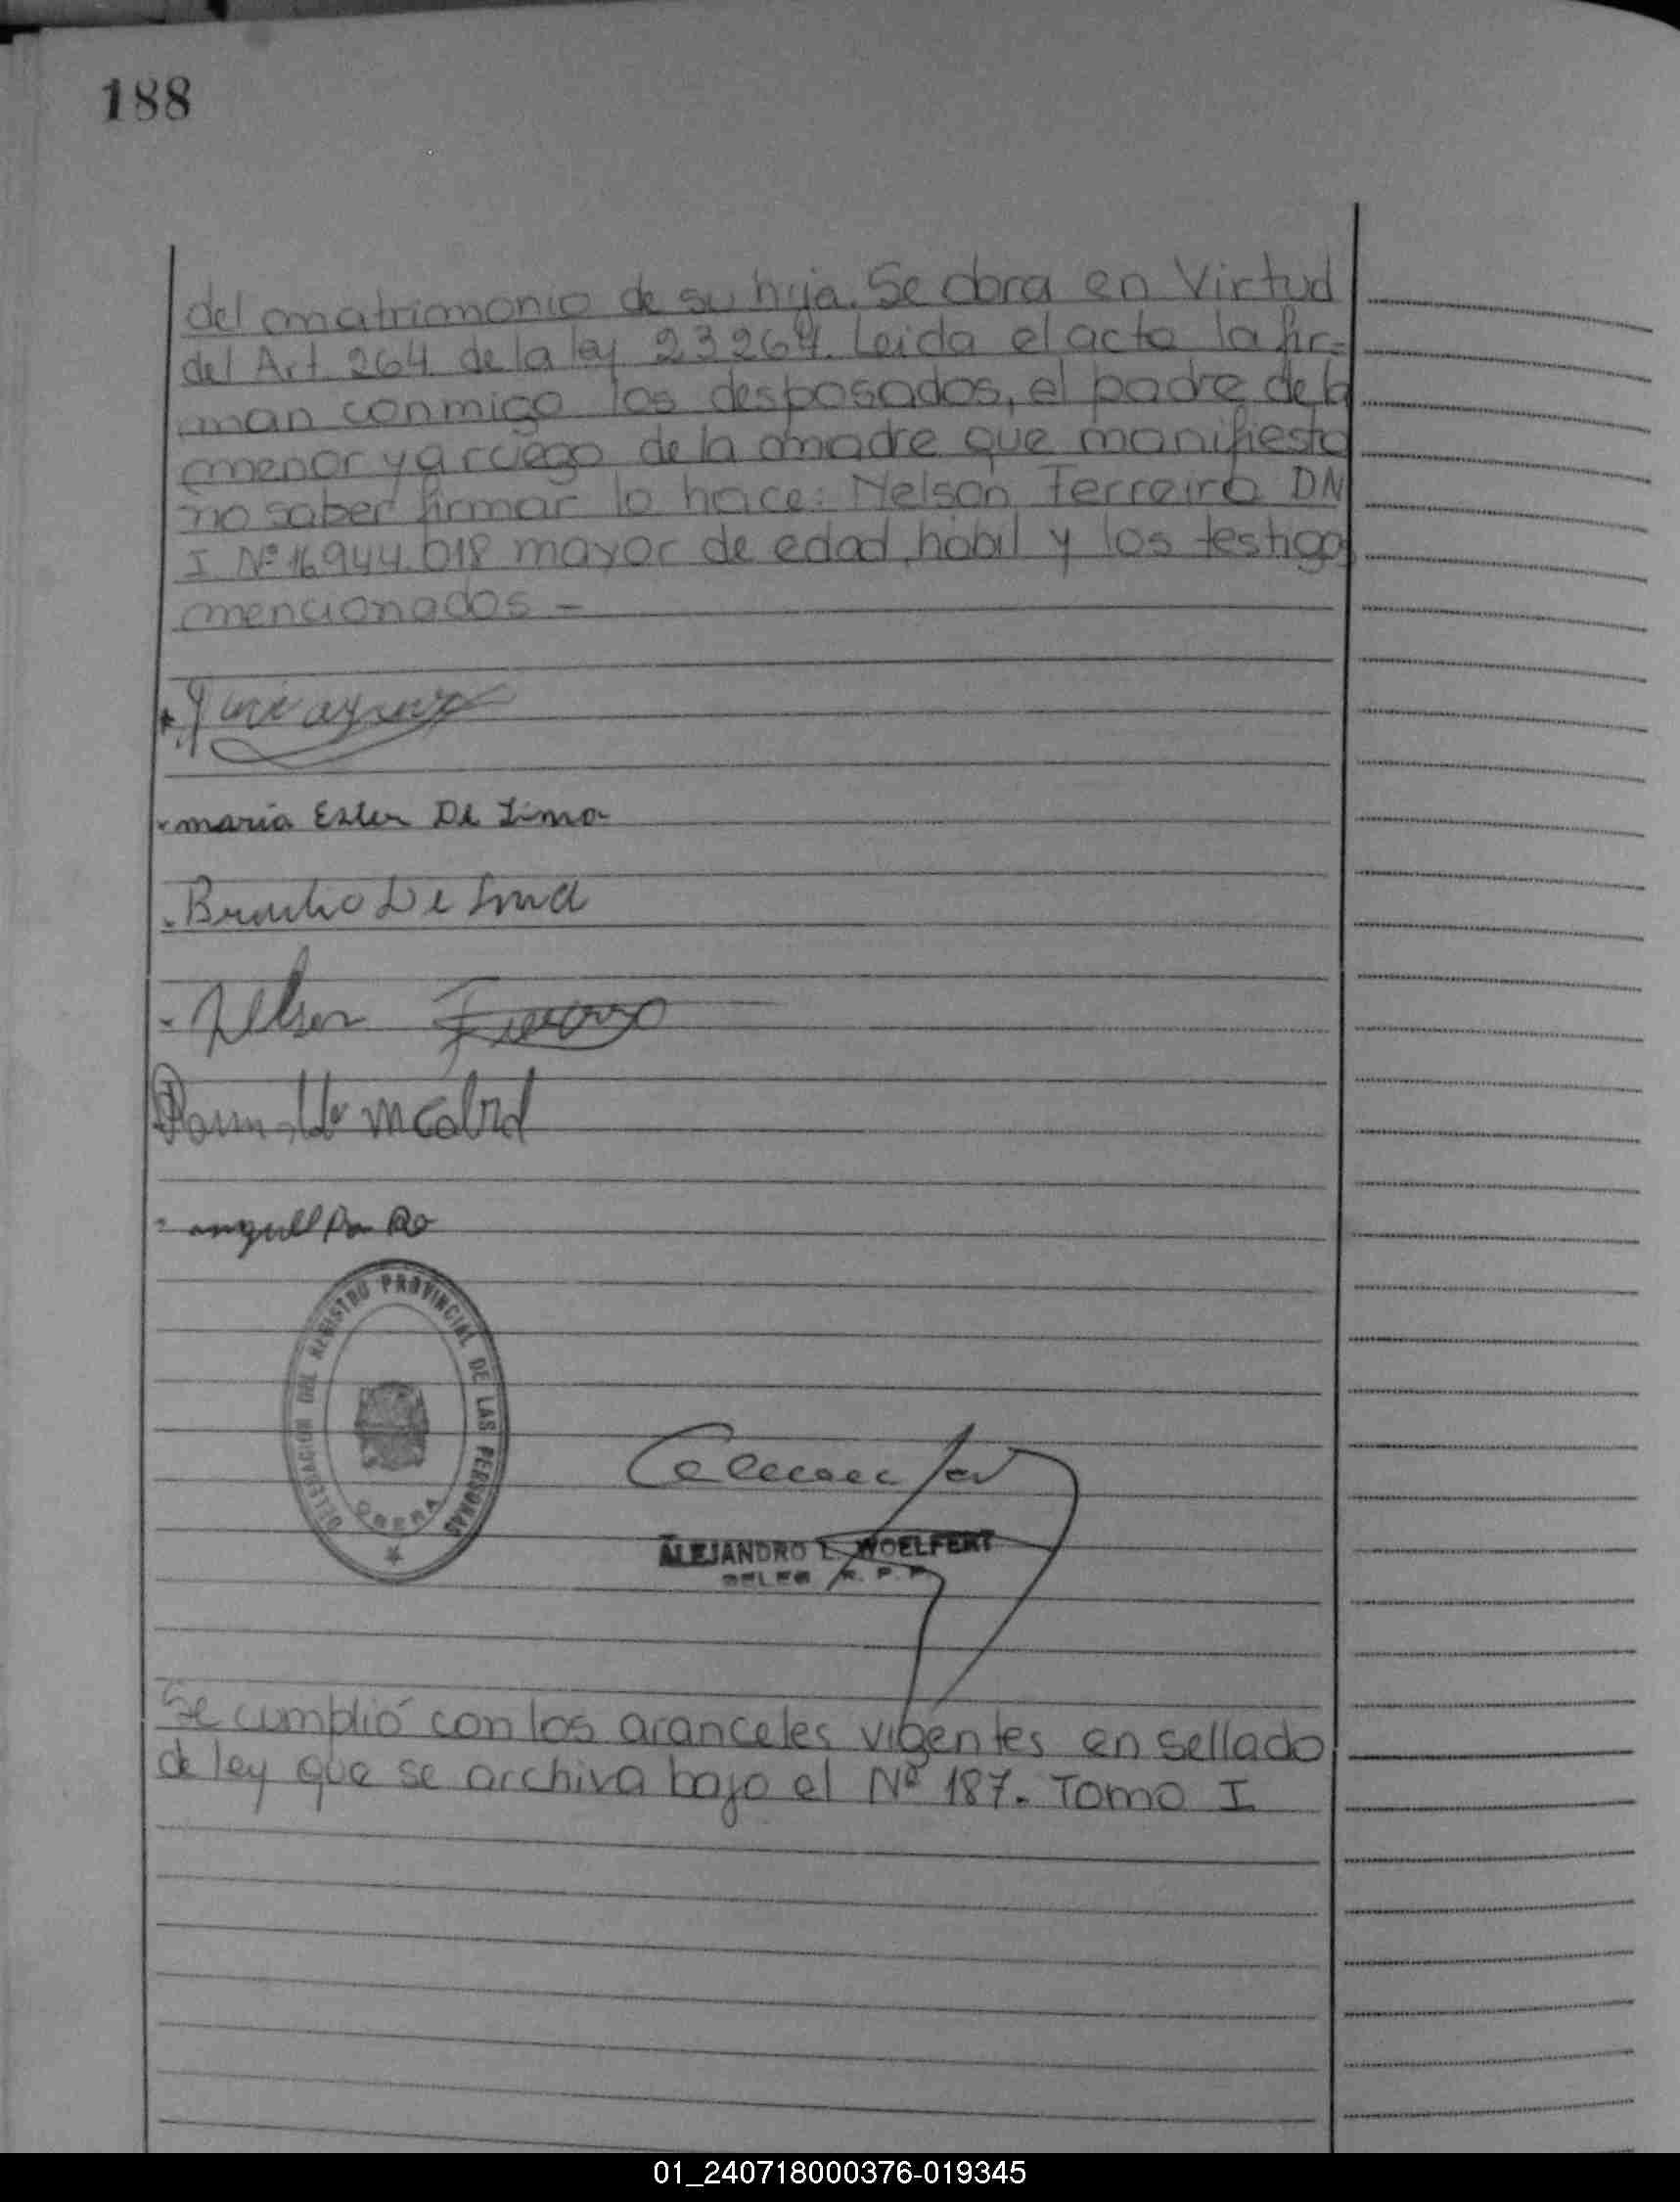 188
del matrimonio de su hija. Se obra en Virtud
del Art. 264 de la ley 23264. Leida el acta la fir=
man conmigo los desposados, el padre de la
menor y a ruego de la madre que manifiesta
no saber firmar lo hace: Nelson Ferreira DN
I Nº 16.944.018 mayor de edad, habil y los testigos
mencionados -
maria Ester De Lima
De Lima
Nelson
DELEGACION DEL REGISTRO PROVINCIAL DE LAS PERSONAS
OBERA
ALEJANDRO L. WOELFERT
DELEG. R. P. P.
Se cumplió con los aranceles vigentes en sellado
de ley que se archiva bajo el Nº 187. Tomo I
01_240718000376-019345